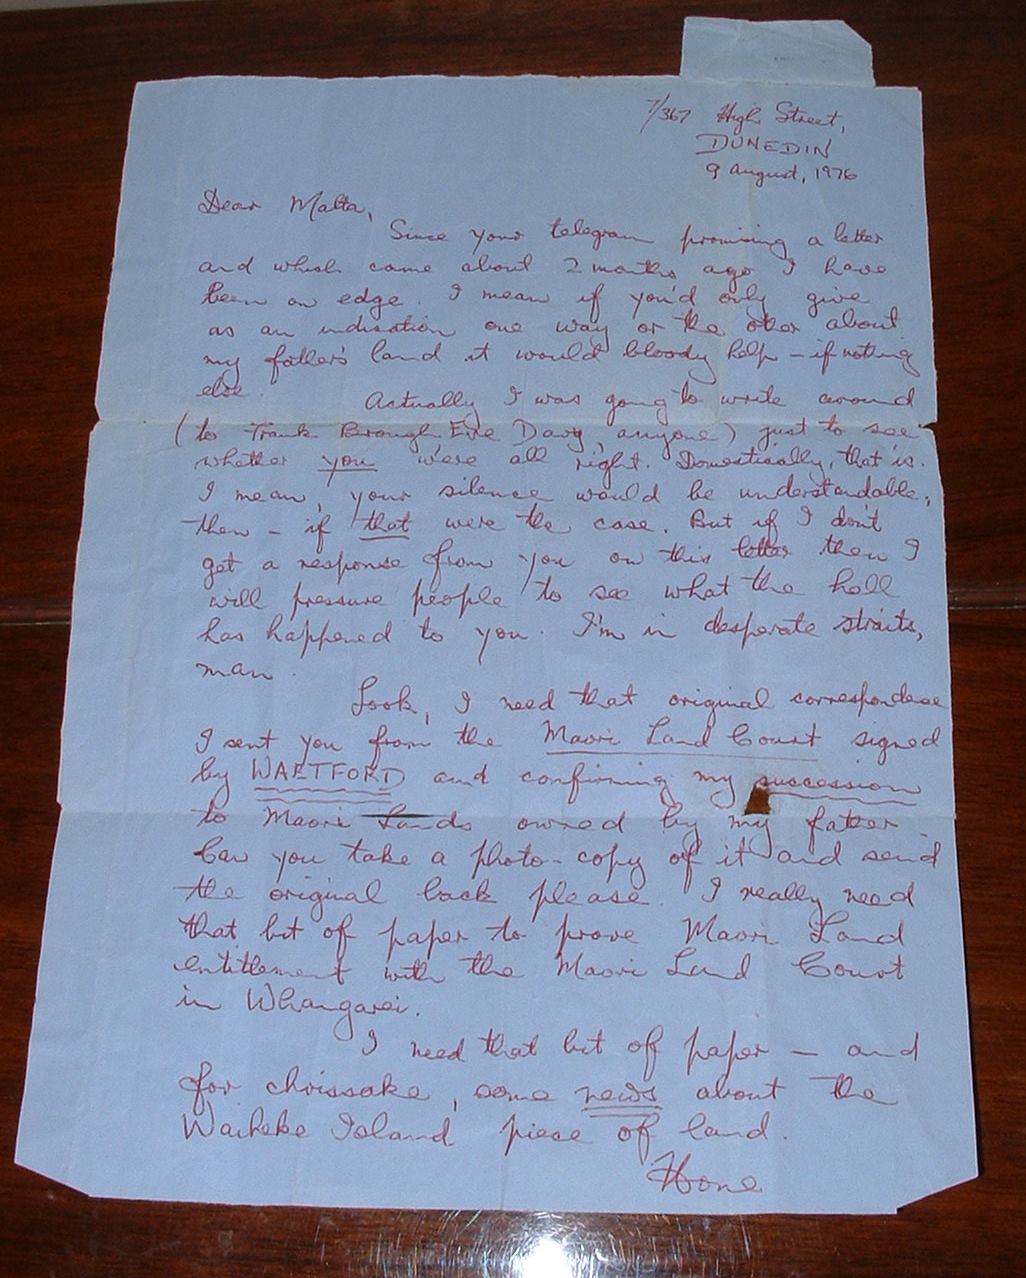 7/367 High Street,
DUNEDIN
9 August, 1976
Dear Malta,
Since your telegram promising a letter
and which came about 2 months ago I have
been on edge. I mean if you'd only give
us an indication one way or the other about
my father's land it would bloody help – if nothing
else.
Actually I was going to write around
(to Frank Brough, Eve Davy, anyone) just to see
whether you were all right. Domestically, that is.
I mean, your silence would be understandable,
then – if that were the case. But if I don't
get a response from you on this letter then I
will pressure people to see what the hell
has happened to you. I'm in desperate straits,
man.
Look, I need that original correspondence
I sent you from the Maori Land Court signed
by and confirming my succession
to Maori Lands owned by my father.
Can you take a photo-copy of it and send
the original back please. I really need
that bit of paper to prove Maori Land
entitlement with the Maori Land Court
in Whangarei.
I need that bit of paper – and
for chrissake, some news about the
Waiheke Island piece of land.
Hone